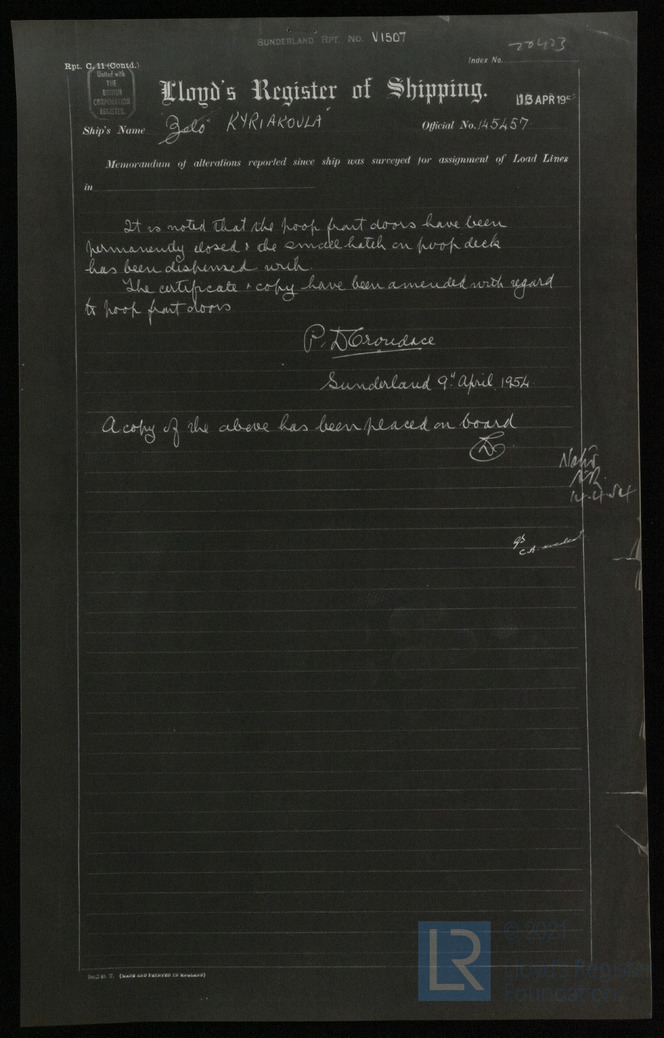 SUNDERLAND RPT. NO. V1507
Rpt. C. 11 (Contd.)
Index No. 20423
United with
THE
BRITISH
CORPORATION
REGISTER.
Lloyd's Register of Shipping.
13 APR 195
Ship's Name Zelo "KYRIAKOULA" Official No. 145457
Memorandum of alterations reported since ship was surveyed for assignment of Load Lines
in
It is noted that the poop front doors have been
permanently closed & the small hatch on poop deck
has been dispensed with.
The certificate & copy have been amended with regard
to poop front doors
P. D Croudace
Sunderland 9th April, 1954
A copy of the above has been placed on board
Noted
14.4.54
(MADE AND PRINTED IN ENGLAND)
LR
© 2021
Lloyd's Register
Foundation